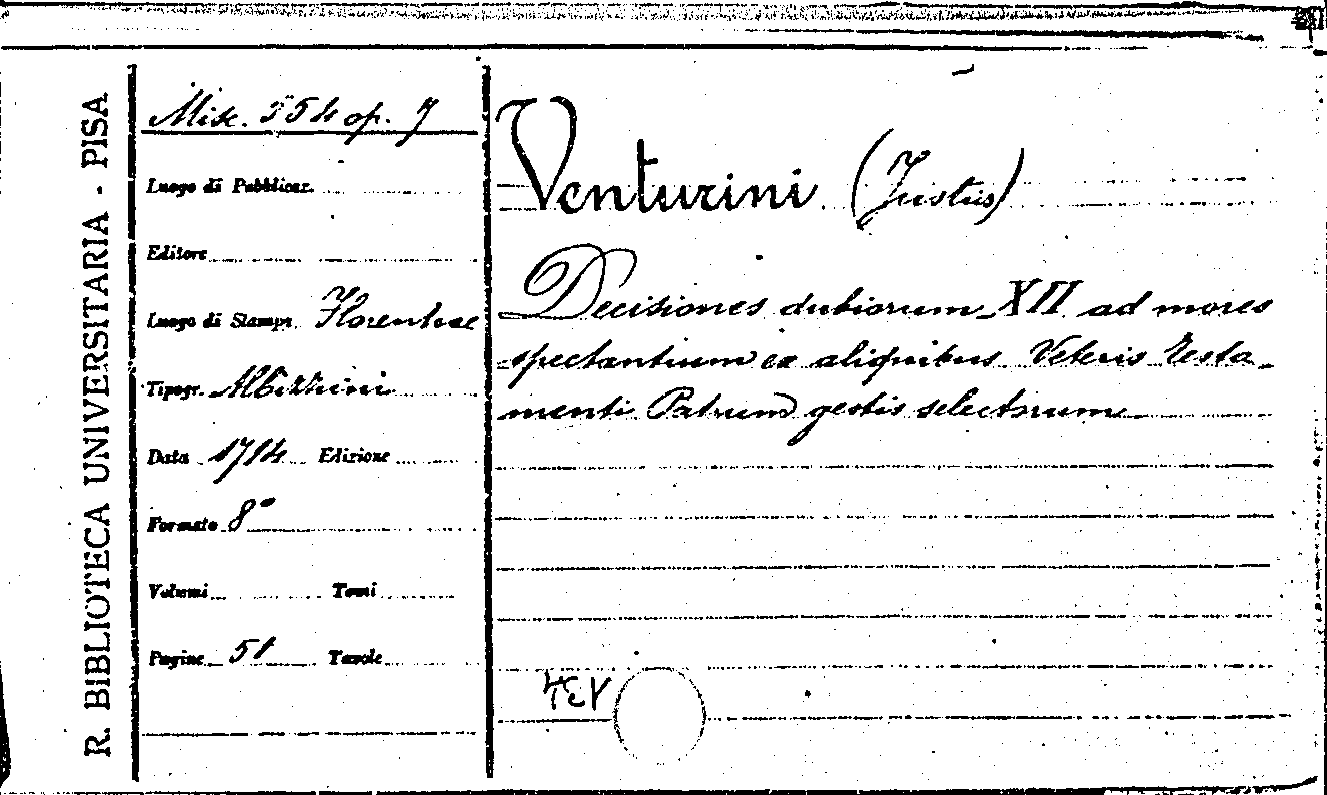 R. BIBLIOTECA UNIVERSITARIA - PISA
Misc. 554 op. 7
Luogo di Pubblicaz.
Editore
Luogo di Stampa Florentiae
Tipogr. Albizzini
Data 1714 Edizione
Formato 8°
Volumi Tomi
Pagine 51 Tavole
Venturini (Justus)
Decisiones dubiorum XII ad mores
spectantium ex aliquibus Veteris Testa
menti Patrum gestis selectorum